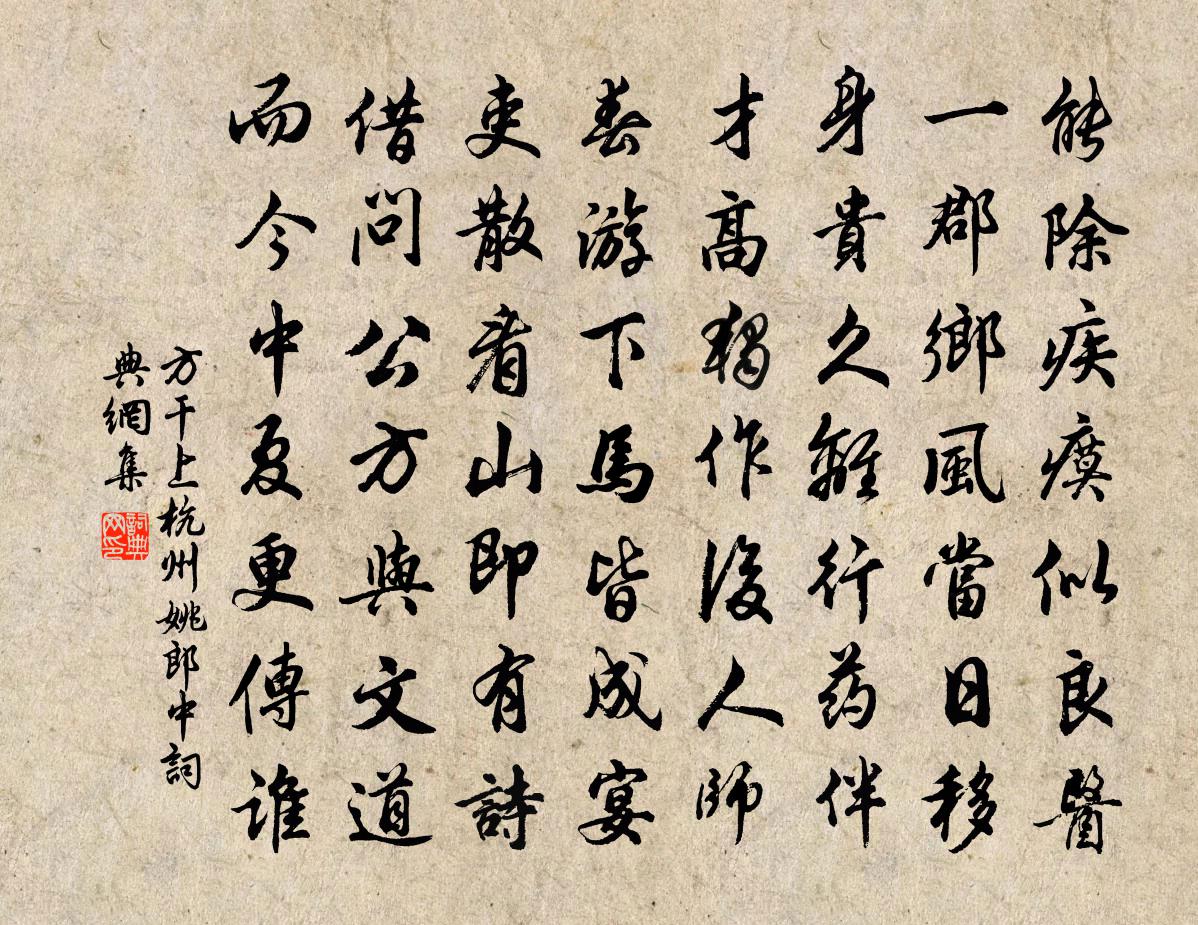 能除疾瘼似良醫
一郡鄉風當日移
身貴久離行药伴
才高獨作後人師
春游下馬皆成宴
吏散看山即有詩
借問公方與文道
而今中夏更傳誰
方干上杭州姚郎中詞
典網集
詞典
网印